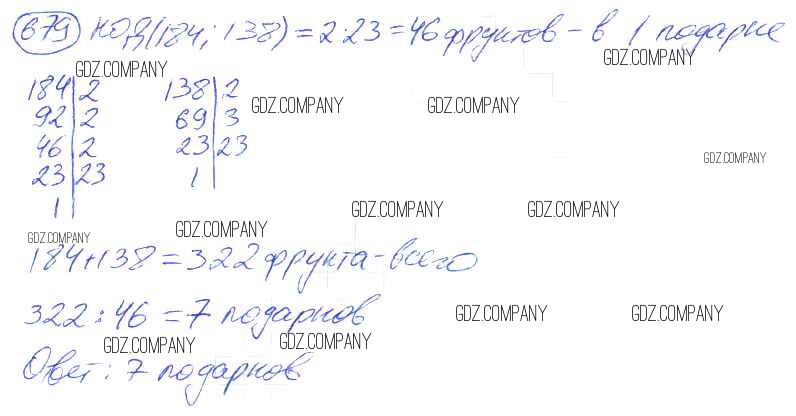 679 НОД(184; 138) = 2·23 = 46 фруктов – в 1 подарке
GDZ.COMPANY GDZ.COMPANY
184|2 138|2
92|2 69|3 GDZ.COMPANY GDZ.COMPANY
46|2 23|23
GDZ.COMPANY
23|23 1|
1|
GDZ.COMPANY GDZ.COMPANY
GDZ.COMPANY GDZ.COMPANY
184+138 = 322 фрукта – всего
322 : 46 = 7 подарков
GDZ.COMPANY GDZ.COMPANY
GDZ.COMPANY GDZ.COMPANY
Ответ: 7 подарков